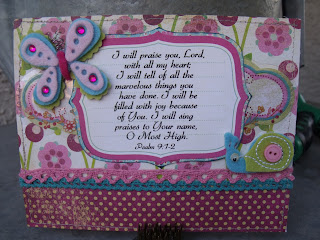 I will praise you, Lord,
with all my heart;
I will tell of all the
marvelous things you
have done. I will be
filled with joy because
of You. I will sing
praises to Your name,
O Most High.
Psalm 9:1-2